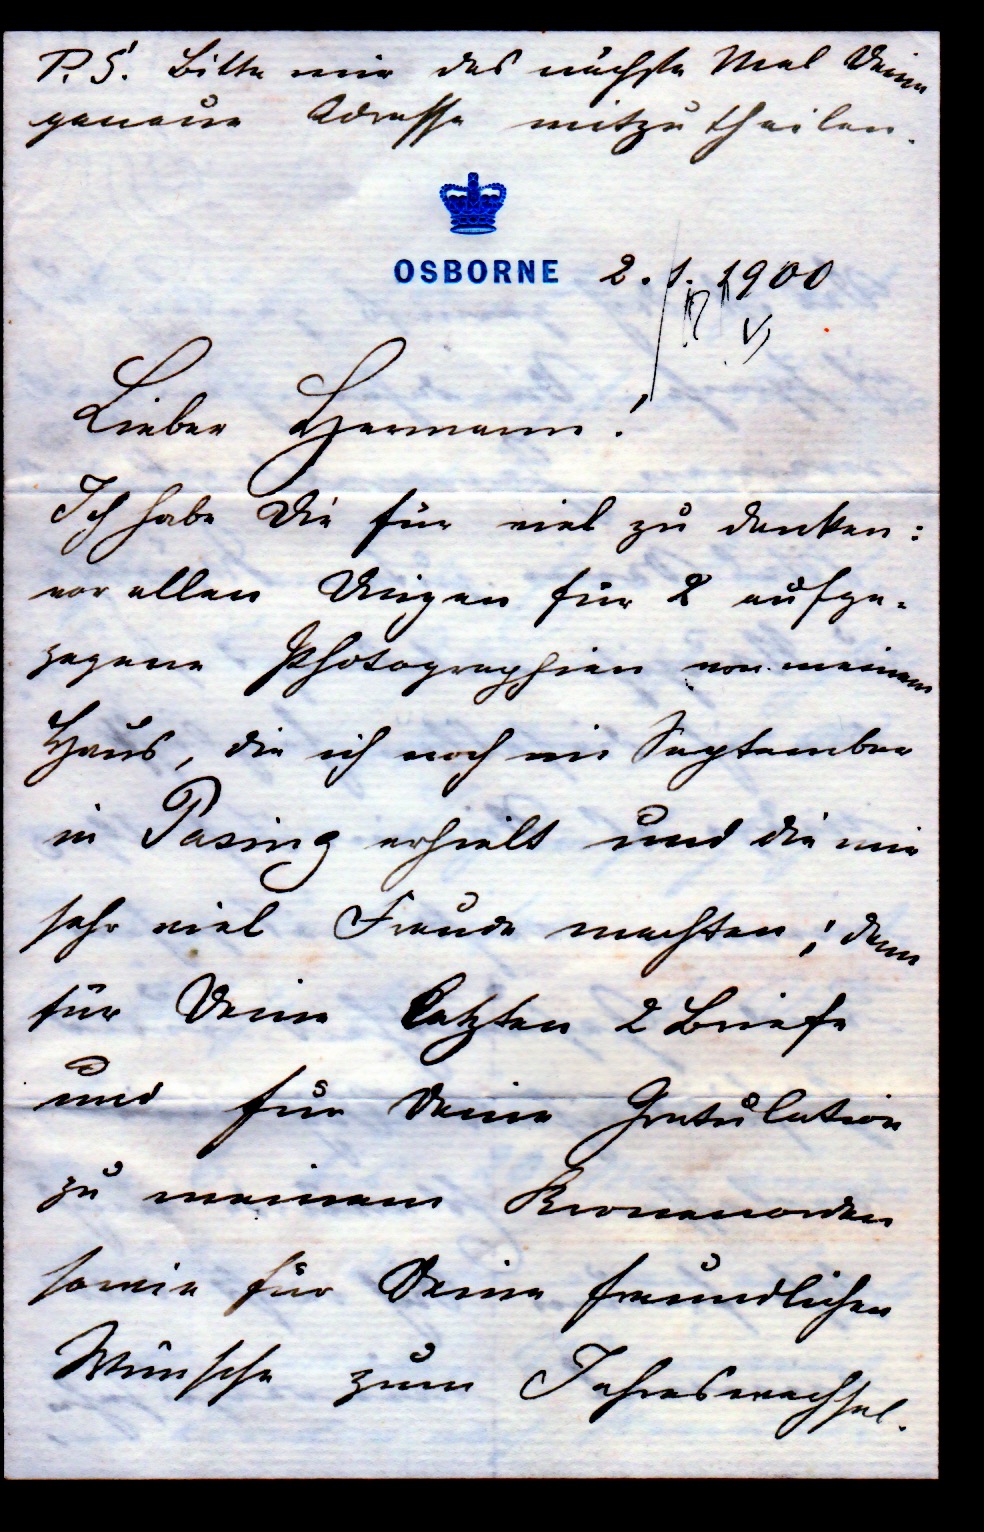 P.S. Bitte mir das nächste Mal Deine
genaue Adresse mitzutheilen.
OSBORNE 2. 1. 1900
Lieber Hermann!
Ich habe Dir für viel zu danken:
vor allen Dingen für 2 aufge-
zogene Photographien von meinem
Haus, die ich noch im September
in Pasing erhielt und die mir
sehr viel Freude machten; dann
für Deine letzten 2 Briefe
und für Deine Gratulation
zu meinem Kronenorden
sowie für Deine freundlichen
Wünsche zum Jahreswechsel.